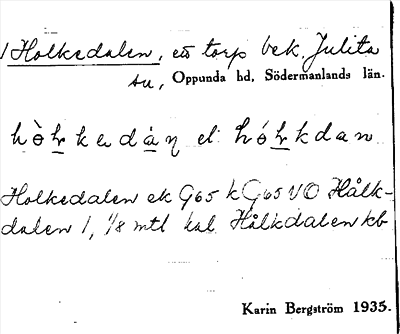 1 Holkedalen, ett torp bek. Julita
sn, Oppunda hd, Södermanlands län.
hòl̲kedȧ̲n el hól̲kdan
Holkedalen ek G65 k G65 VO Hålk-
dalen 1, 1/8 mtl kal Hålkdalen kb
Karin Bergström 1935.